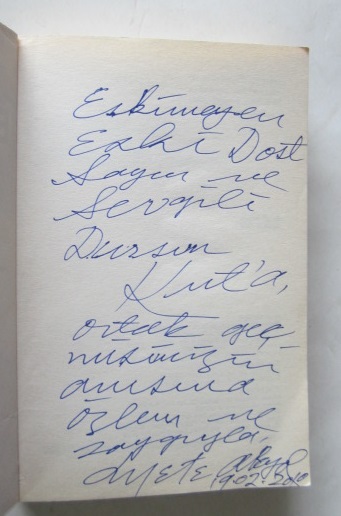 Eskimeyen
Eski Dost
Sayın ve
Sevgili
Dursun
Kut'a,
ortak geç-
mişimizin
anısına
özlem ve
saygıyla.
Mete Akyol
19.02.2010